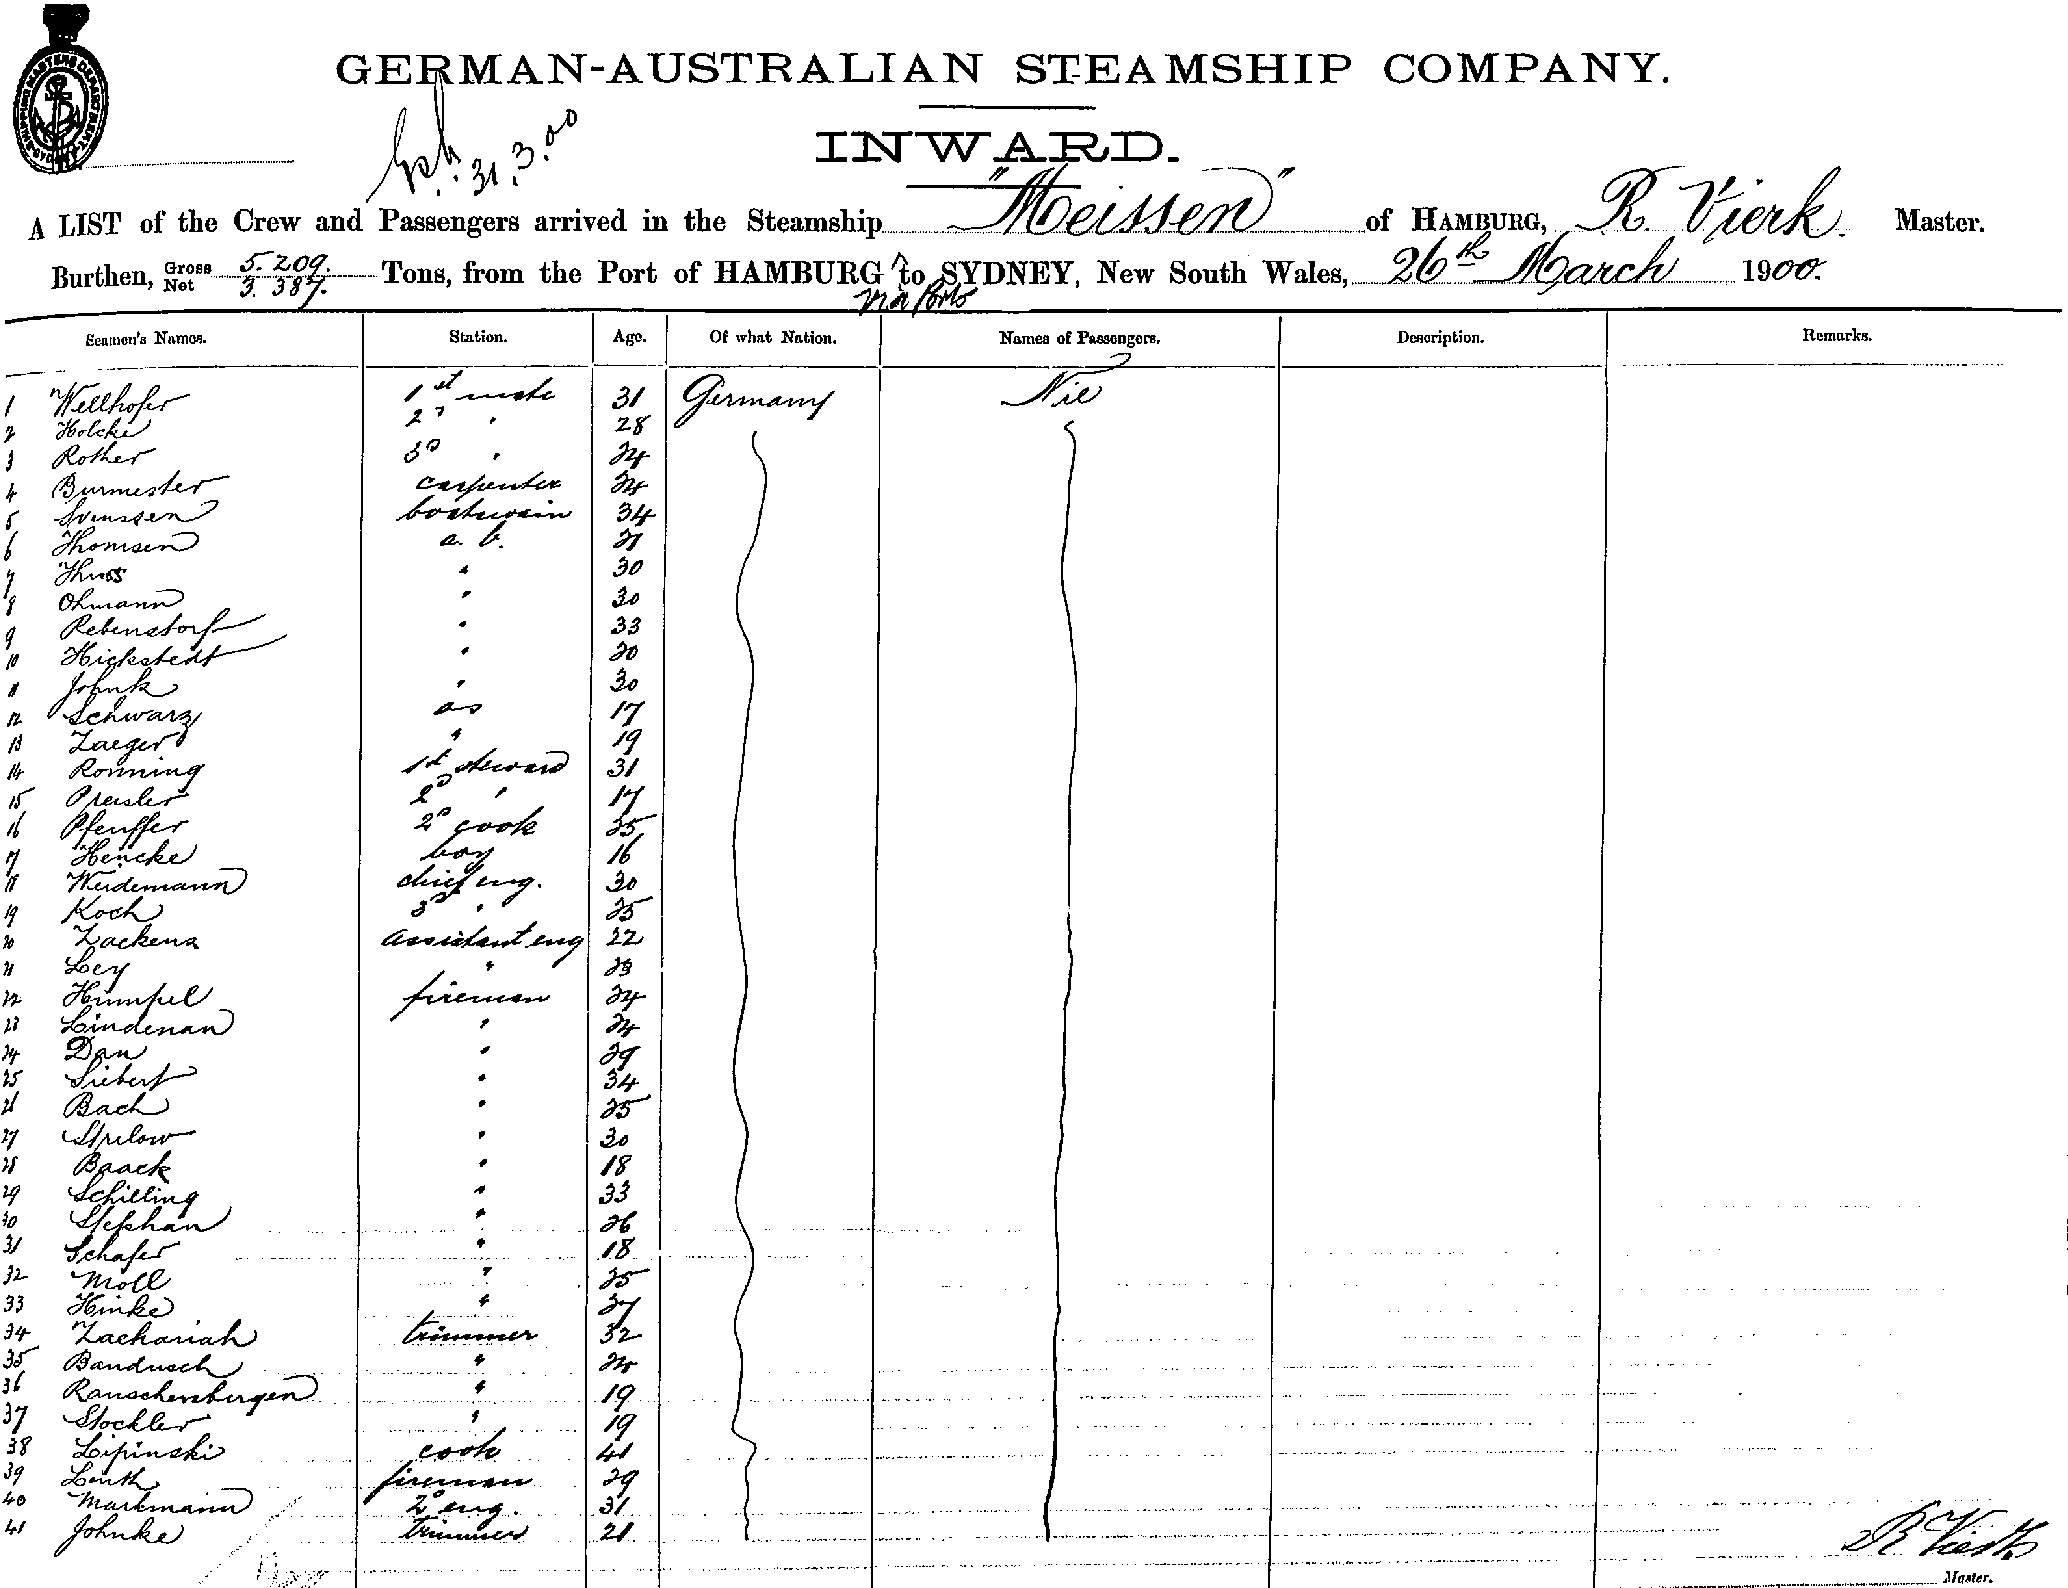 GERMAN-AUSTRALIAN STEAMSHIP COMPANY.
31.3.00
INWARD.
A LIST of the Crew and Passengers arrived in the Steamship "Meissen" of HAMBURG, R. Vierk. Master.
Burthen, Gross 5.209. Net 3.387. Tons, from the Port of HAMBURG ^ to SYDNEY, New South Wales, 26th March 1900.
via Ports
Seamen's Names. Station. Age. Of what Nation. Names of Passengers. Description. Remarks.
1 Wellhofer 1st mate 31 Germany Nil
2 Holcke 2d " 28
3 Rother 3d " 24
4 Burmester carpenter 24
5 Svenssen boatswain 34
6 Thomsen a. b. 21
7 Thuss " 30
8 Ohmann " 30
9 Rebenstorf " 33
10 Hickstedt " 20
11 Johnk " 30
12 Schwarz os 17
13 Zaeger " 19
14 Ronning 1st steward 31
15 Preisler 2d " 17
16 Pfeuffer 2d cook 25
17 Hencke boy 16
18 Weidemann chief eng. 30
19 Koch 3d " 25
20 Zackens assistant eng 22
21 Ley " 23
22 Humpel fireman 24
23 Lindenau " 24
24 Dau " 29
25 Siebert " 34
26 Bach " 25
27 Strelow " 30
28 Baack " 18
29 Schilling " 33
30 Stephan " 26
31 Schafer " 18
32 Moll " 25
33 Hinke " 27
34 Zachariah trimmer 32
35 Bandusch " 24
36 Rauschenbergen " 19
37 Stockler " 19
38 Lipinski cook 41
39 Lenth fireman 29
40 Markmann 2d eng. 31
41 Johnke trimmer 21
R Vierk
Master.